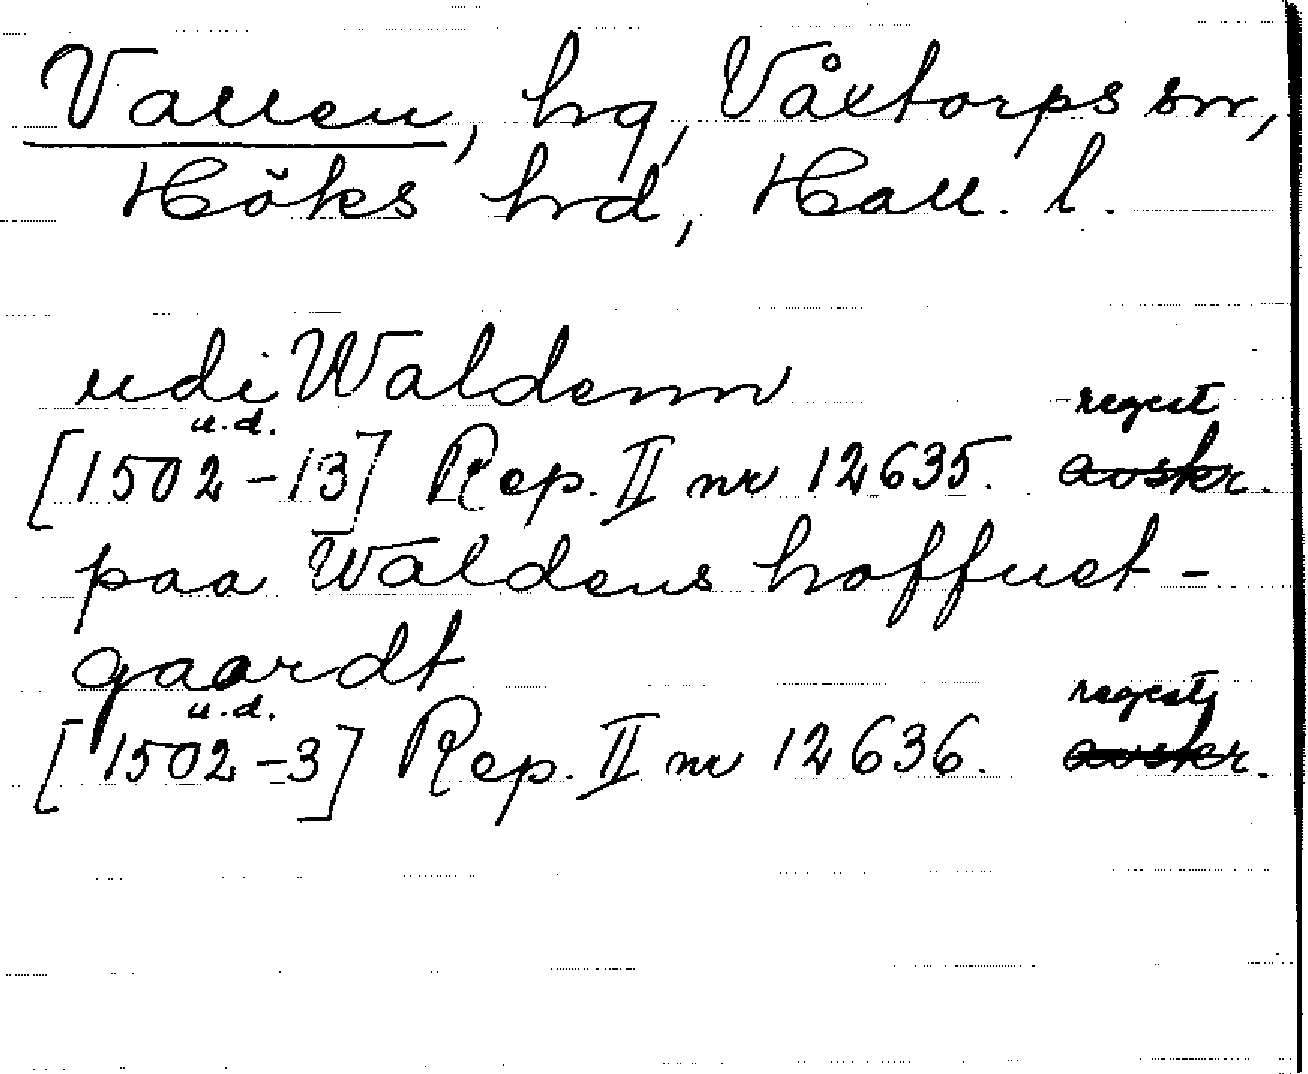 Vallen, hg, Våxtorps sn,
Höks hrd, Hall. l.
udi Waldenn
u.d. regest
[1502-13] Rep. II nr 12635. avskr.
paa Waldens hoffuet-
gaardt
u.d. regest
[1502-3] Rep. II nr 12636. avskr.